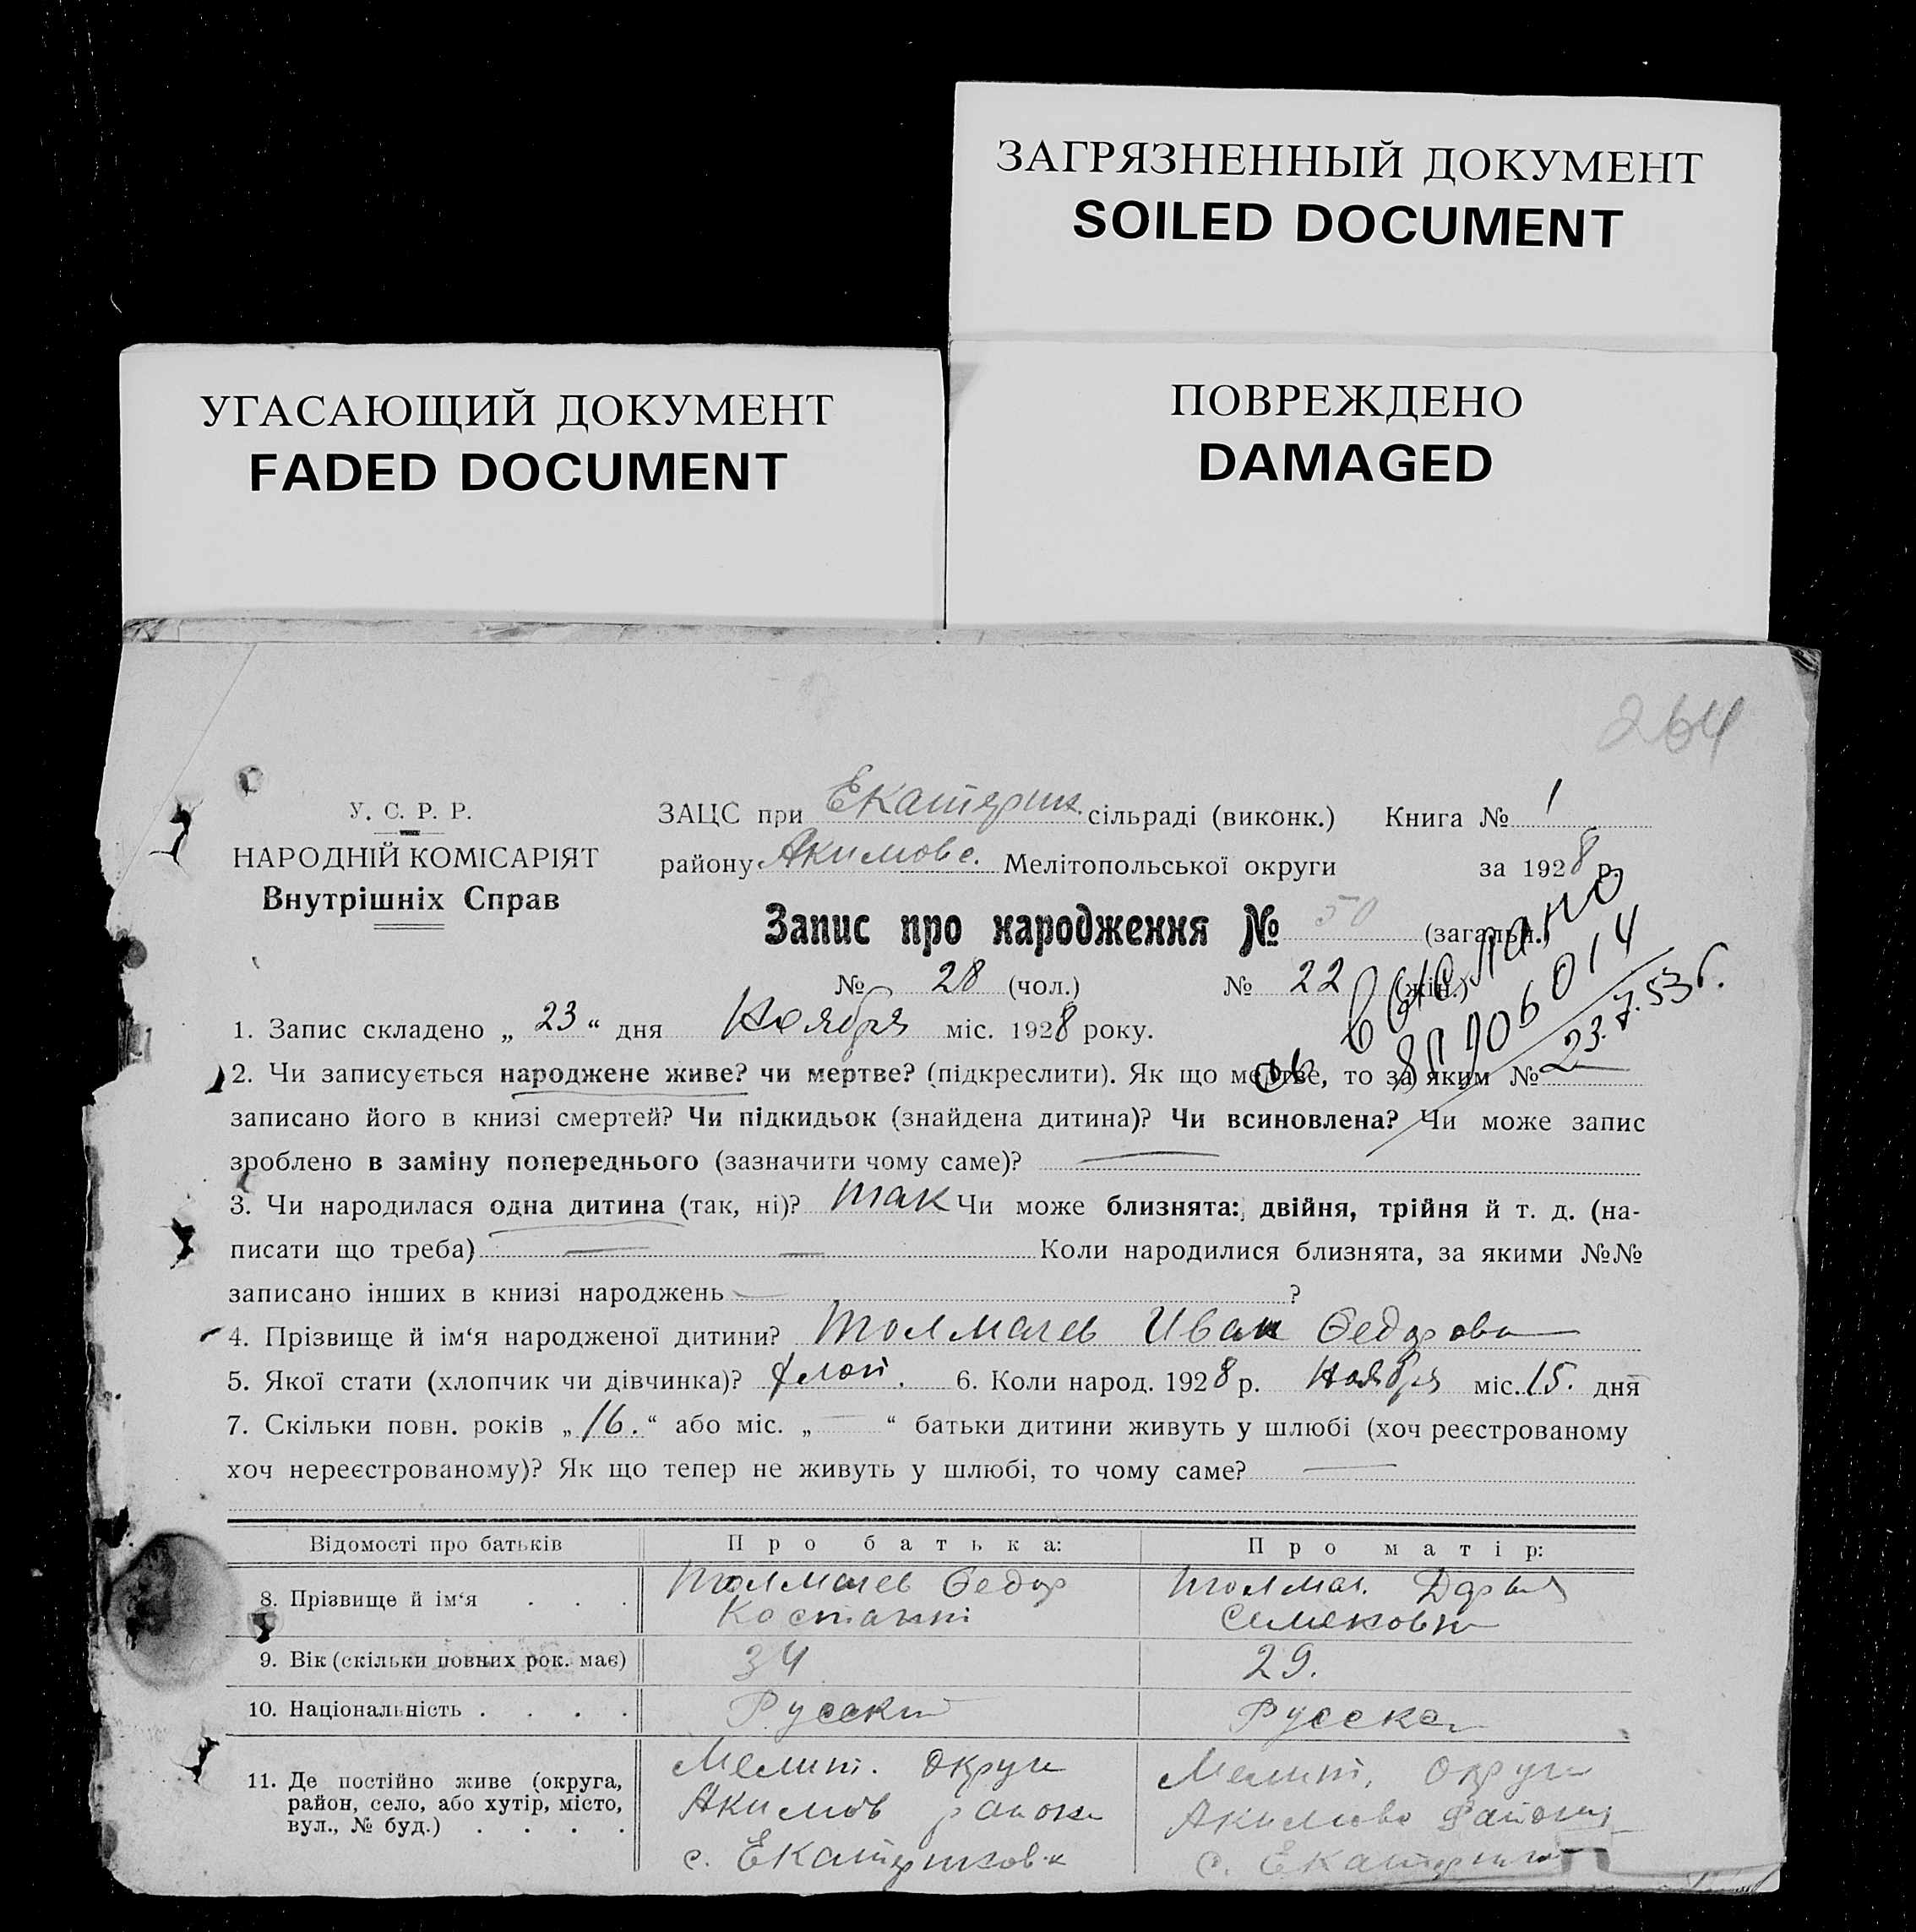 ЗАГРЯЗНЕННЫЙ ДОКУМЕНТ
SOILED DOCUMENT
УГАСАЮЩИЙ ДОКУМЕНТ
FADED DOCUMENT
ПОВРЕЖДЕНО
DAMAGED
264
У. С. Р. Р.
НАРОДНІЙ КОМІСАРІЯТ
Внутрішніх Справ
ЗАЦС при Екатерин. сільраді (виконк.) Книга № 1
району Акимовс. Мелітопольської округи за 1928 р.
Запис про народження № 50 (загальн.)
№ 28 (чол.) № 22 (жін.)
выслано
23.7.53г.
1. Запис складено „ 23 “ дня Ноября міс. 1928 року.
2. Чи записується народжене живе? чи мертве? (підкреслити). Як що мертве, то за яким №
записано його в книзі смертей? Чи підкидьок (знайдена дитина)? Чи всиновлена? Чи може запис
зроблено в заміну попереднього (зазначити чому саме)?
3. Чи народилася одна дитина (так, ні)? так Чи може близнята: двійня, трійня й т. д. (на-
писати що треба) Коли народилися близнята, за якими №№
записано інших в книзі народжень ?
4. Прізвище й ім‘я народженої дитини? Толмачев Иван Федорови
5. Якої стати (хлопчик чи дівчинка)? 6. Коли народ. 1928 р. Ноября міс. 15. дня
7. Скільки повн. років „ 16. “ або міс. „ — “ батьки дитини живуть у шлюбі (хоч реєстрованому
хоч нереєстрованому)? Як що тепер не живуть у шлюбі, то чому саме?
Відомості про батьків Про батька: Про матір:
8. Прізвище й ім‘я . . . Толмачев Федор Толмач. Дарья
Костант Семеновн
9. Вік (скільки повних рок. має) 34 29.
10. Національність . . . . Русский Русская
11. Де постійно живе (округа, Мелит. Округи Мелит. Округи
район, село, або хутір, місто, Акимов района Акимово района
вул., № буд.) . . . . с. Екатериновк с. Екатерин